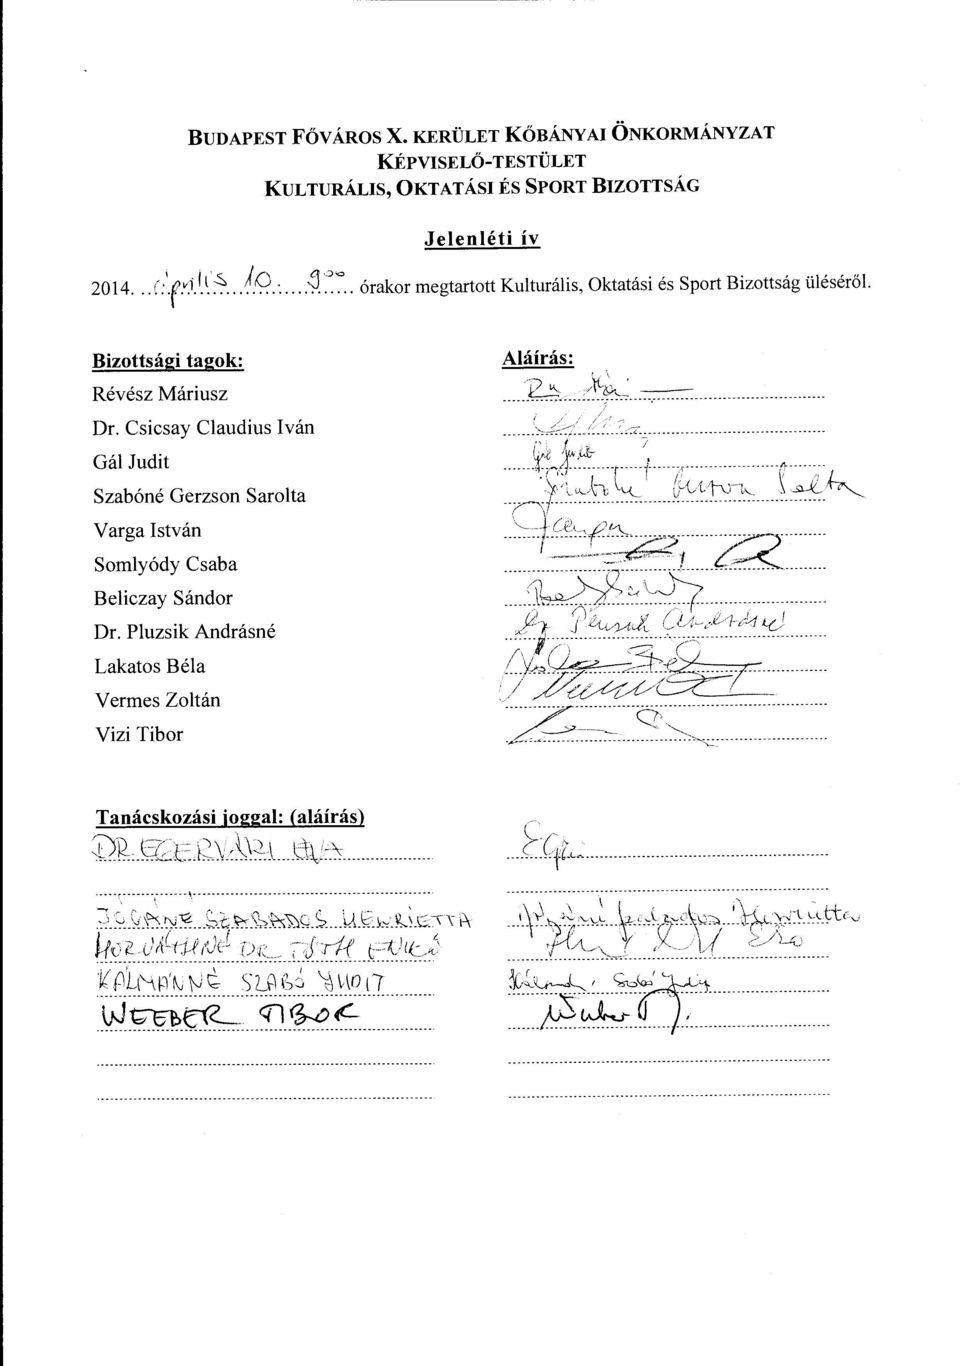 BUDAPEST FŐVÁROS X. KERÜLET KŐBÁNYAI ÖNKORMÁNYZAT
KÉPVISELŐ-TESTÜLET
KULTURÁLIS, OKTATÁSI ÉS SPORT BIZOTTSÁG
Jelenléti ív
2014. április 10. 9⁰⁰ órakor megtartott Kulturális, Oktatási és Sport Bizottság üléséről.
Bizottsági tagok: Aláírás:
Révész Máriusz
Dr. Csicsay Claudius Iván
Gál Judit Gál Judit
Szabóné Gerzson Sarolta
Varga István
Somlyódy Csaba
Beliczay Sándor
Dr. Pluzsik Andrásné Dr Pluzsik Andrásné
Lakatos Béla
Vermes Zoltán
Vizi Tibor
Tanácskozási joggal: (aláírás)
DR. EGERVÁRI ÉVA
JÓGÁNÉ SZABADOS HENRIETTA Jógáné Szabados Henrietta
HORVÁTHNÉ DR. TÓTH ENIKŐ
KÁLMÁNNÉ SZABÓ JUDIT Kálmánné Szabó Judit
WEEBER TIBOR Weeber T.